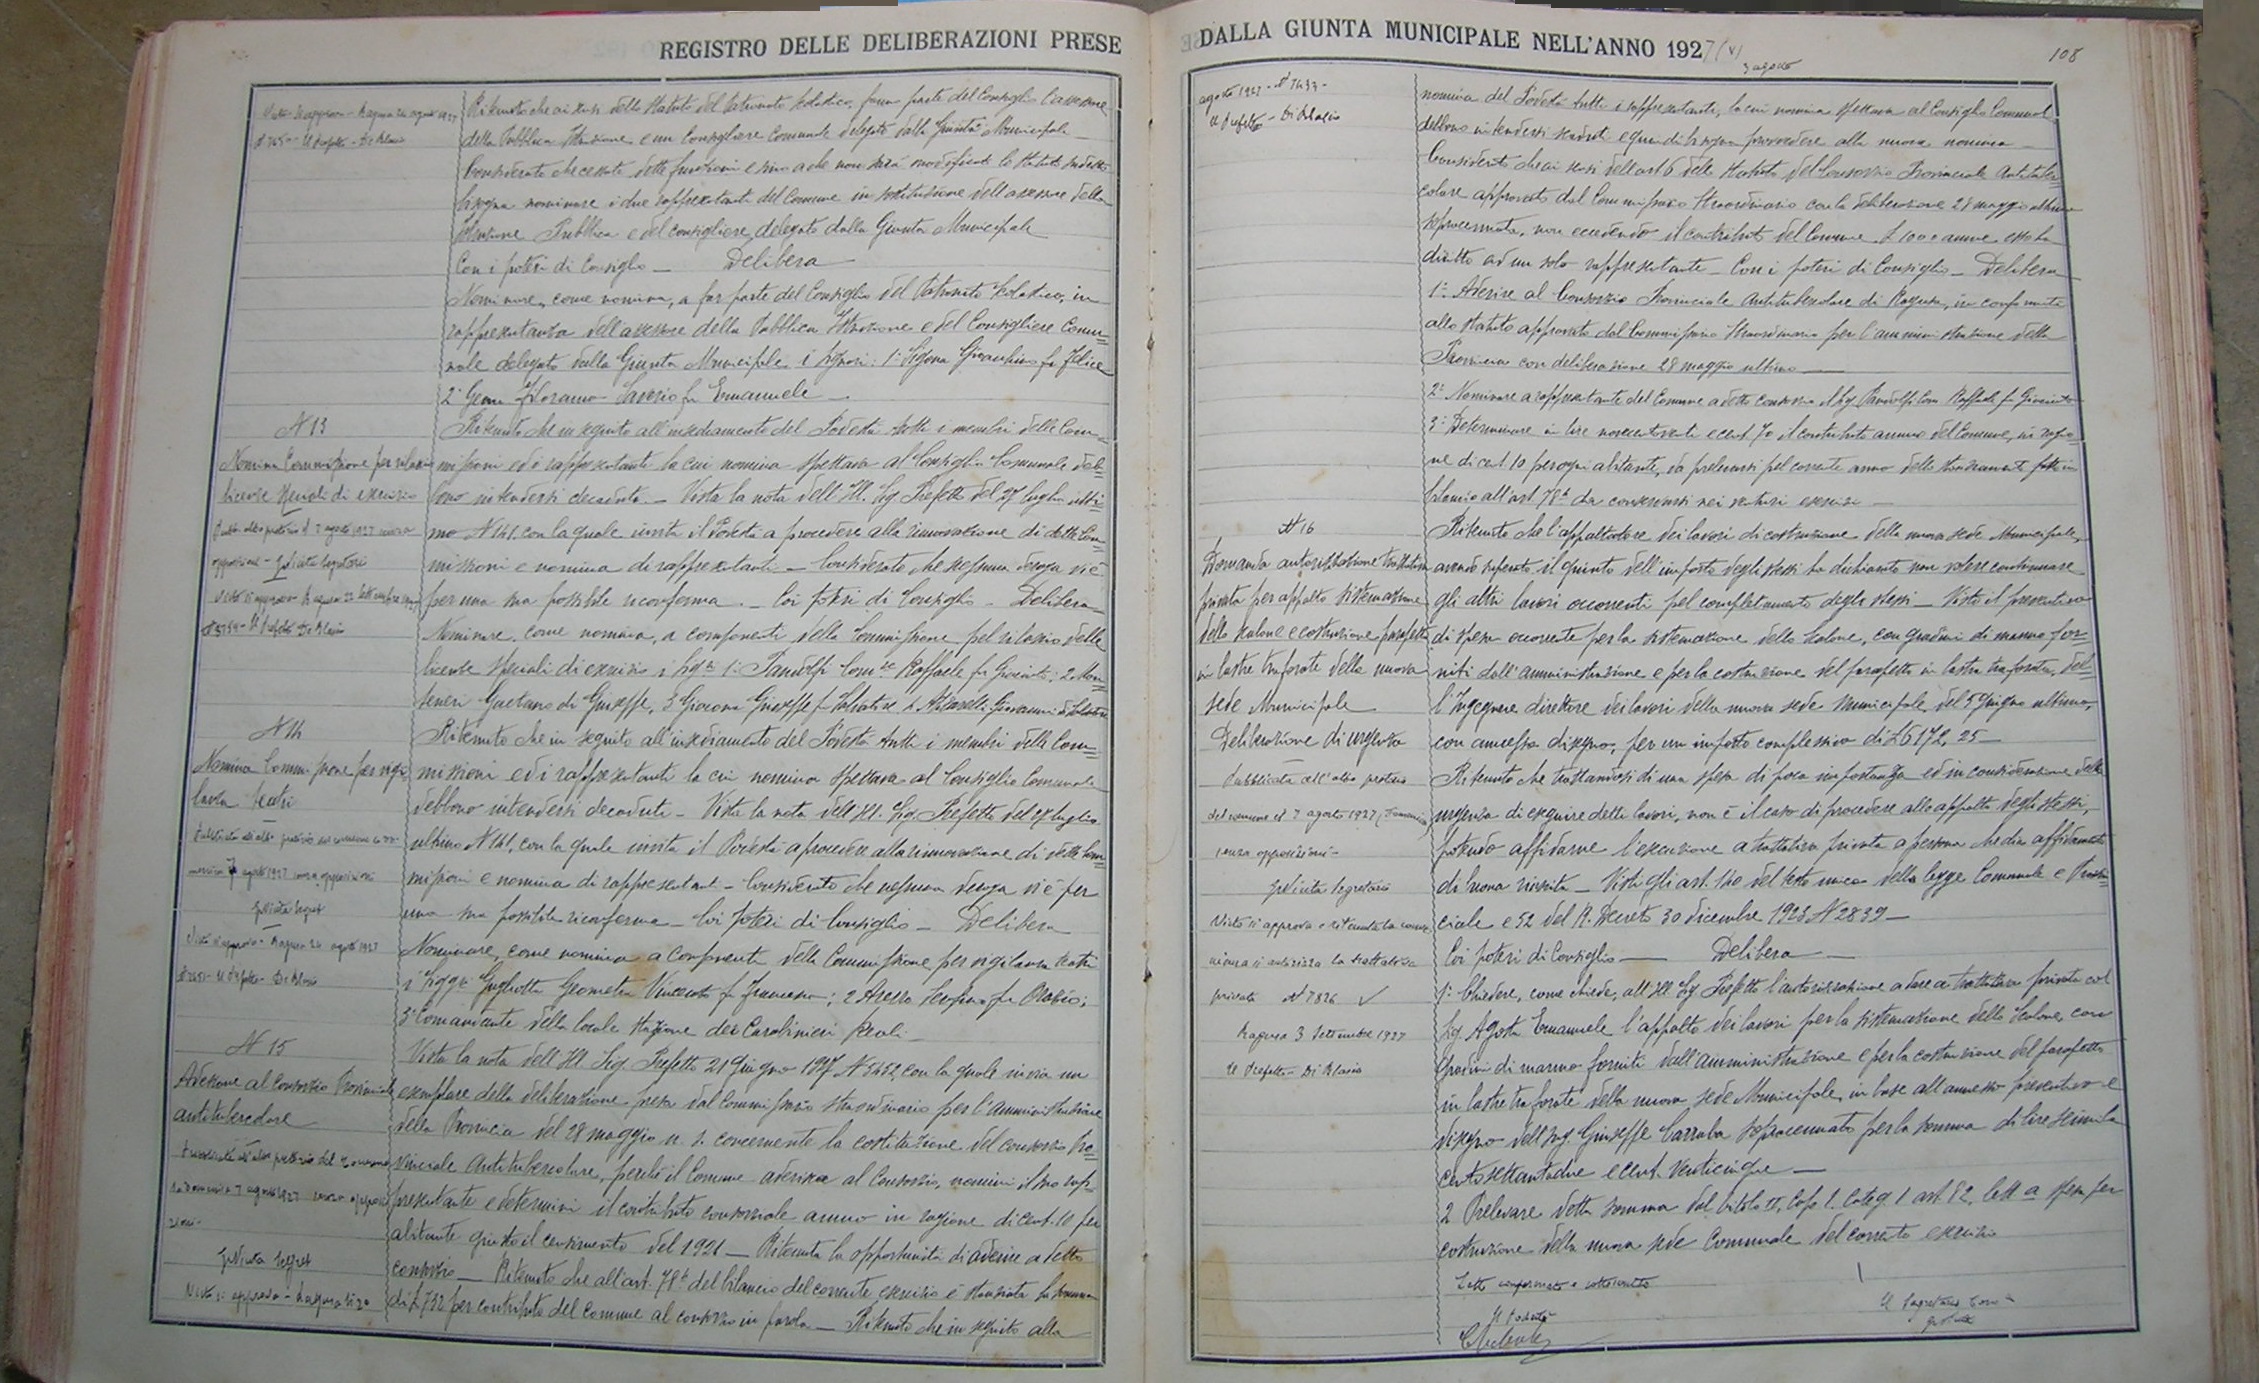 REGISTRO DELLE DELIBERAZIONI PRESE
Visto si approva - Ragusa 20 agosto 1927
Il Prefetto - Di Blasio
Ritenuto che ai sensi dello Statuto del Patronato Scolastico, fanno parte del Consiglio l'assessore
della Pubblica Istruzione e un Consigliere Comunale delegato dalla Giunta Municipale
Considerato che cessate dette funzioni e sino a che non sarà modificato lo Statuto suddetto
bisogna nominare i due rappresentanti del Comune in sostituzione dell'assessore della
Istruzione Pubblica e del consigliere delegato dalla Giunta Municipale
Con i poteri di Consiglio — Delibera —
Nominare, come nomina, a far parte del Consiglio del Patronato Scolastico, in
rappresentanza dell'assessore della Pubblica Istruzione e del Consigliere Comu=
nale delegato dalla Giunta Municipale i Signori: 1° Gioachino fu Felice
2° Geom. Floramo Saverio fu Emanuele —
N 13
Nomina Commissione per rilascio
licenze speciali di esercizio
Ritenuto che in seguito all'insediamento del Podestà tutti i membri delle Com=
missioni ed i rappresentanti la cui nomina spettava al Consiglio Comunale deb=
bono intendersi decaduti — Vista la nota dell'Ill. Sig. Prefetto del 27 luglio ulti=
mo N 141 con la quale invita il Podestà a procedere alla rinnovazione di dette Com=
missioni e nomina di rappresentanti — Considerato che nessuna deroga vi è
per una sua possibile riconferma — Coi poteri di Consiglio — Delibera
Nominare, come nomina, a componenti della Commissione pel rilascio delle
licenze speciali di esercizio i Sigri 1° Pandolfi Raffaele fu Giacinto; 2
Gaetano di Giuseppe, 3 Giacona Giuseppe fu Salvatore Giovanni di Salvatore
N 14
Nomina Commissione per vigi=
lanza teatri
Ritenuto che in seguito all'insediamento del Podestà tutti i membri delle Com=
missioni ed i rappresentanti la cui nomina spettava al Consiglio Comunale
debbono intendersi decaduti — Vista la nota dell'Ill. Sig. Prefetto del 27 luglio
ultimo N 141, con la quale invita il Podestà a procedere alla rinnovazione di dette Com=
missioni e nomina di rappresentanti — Considerato che nessuna deroga vi è per
una sua possibile riconferma — Coi poteri di Consiglio — Delibera
Nominare, come nomina a componenti della Commissione per vigilanza teatri
i Sigri Gugliotta Geometra Vincenzo fu Francesco; 2 Arezzo Serafino fu Orazio;
3° Comandante della locale Stazione dei Carabinieri Reali —
N 15
Adesione al Consorzio Provinciale
antitubercolare
Vista la nota dell'Ill. Sig. Prefetto 21 Giugno 1927 N 5452, con la quale invia un
esemplare della deliberazione presa dal Commissario straordinario per l'amministrazione
della Provincia del 28 maggio u. s. concernente la costituzione del consorzio Pro=
vinciale Antitubercolare, perché il Comune aderisca al Consorzio, nomini il suo rap=
presentante e determini il contributo consorziale annuo in ragione di cent. 10 per
abitante giusto il censimento del 1921 — Ritenuta la opportunità di aderire a detto
consorzio — Ritenuto che all'art. 78 b del bilancio del corrente esercizio è stanziata la somma
di £ 732 per contributo del Comune al consorzio in parola — Ritenuto che in seguito alla
DALLA GIUNTA MUNICIPALE NELL'ANNO 1927 (V)
3 agosto
108
agosto 1927 - N 7437 -
Il Prefetto - Di Blasio
nomina del Podestà tutti i rappresentanti, la cui nomina spettava al Consiglio Comunale
debbono intendersi scaduti e quindi bisogna provvedere alla nuova nomina —
Considerato che ai sensi dell'art 6 dello Statuto del Consorzio Provinciale Antituber=
colare approvato dal Commissario Straordinario con la deliberazione 28 maggio ultimo
sopracennata, non eccedendo il contributo del Comune £ 1000 annue esso ha
diritto ad un solo rappresentante — Con i poteri di Consiglio — Delibera
1° Aderire al Consorzio Provinciale Antitubercolare di Ragusa, in conformità
allo statuto approvato dal Commissario Straordinario per l'amministrazione della
Provincia con deliberazione 28 maggio ultimo —
2° Nominare a rappresentante del Comune a detto consorzio il Sig. Pandolfi Raffaele fu Giacinto
3° Determinare in lire novecentoventi e cent. 70 il contributo annuo del Comune, in ragio=
ne di cent 10 per ogni abitante, da prelevarsi pel corrente anno dallo stanziamento fatto in
bilancio all'art. 78 b da conservarsi nei venturi esercizi —
N 16
Domanda autorizzazione trattativa
privata per appalto sistemazione
dello scalone e costruzione parapetto
in lastre traforate della nuova
sede Municipale
Deliberazione di urgenza
Pubblicata all'albo pretorio
del comune il 7 agosto 1927 (Domenica)
senza opposizioni -
Visto si approva e ritenuta la conve
nienza si autorizza la trattativa
privata N 7826
Ragusa 3 Settembre 1927
Il Prefetto - Di Blasio
Ritenuto che l'appaltatore dei lavori di costruzione della nuova sede Municipale,
avendo superato il quinto dell'importo degli stessi ha dichiarato non volere continuare
gli altri lavori occorrenti pel completamento degli stessi — Visto il preventivo
di spesa occorrente per la sistemazione dello Scalone, con gradini di marmo for=
niti dall'amministrazione e per la costruzione del parapetto in lastre traforate, del=
l'Ingegnere direttore dei lavori della nuova sede Municipale del 5 Giugno ultimo,
con annesso disegno, per un importo complessivo di £ 6172, 25 —
Ritenuto che trattandosi di una spesa di poca importanza ed in considerazione della
urgenza di eseguire detti lavori, non è il caso di procedere allo appalto degli stessi,
potendo affidarne l'esecuzione a trattativa privata a persona che dia affidamento
di buona riuscita — Visti gli art. 140 del testo unico della legge Comunale e Provin=
ciale e 52 del R. Decreto 30 dicembre 1923 N 2839 —
Coi poteri di Consiglio — Delibera —
1° Chiedere, come chiede, all'Ill. Sig. Prefetto l'autorizzazione a dare a trattativa privata col
Sig. Agosta Emanuele l'appalto dei lavori per la sistemazione dello Scalone, con
gradini di marmo forniti dall'amministrazione e per la costruzione del parapetto
in lastre traforate della nuova sede Municipale, in base all'annesso preventivo e
disegno dell'Ing. Giuseppe Carraba sopracennato per la somma di lire seimila
centosettantadue e cent. venticinque —
2 Prelevare detta somma dal titolo II, Capo 1. Categ. 1 art. 82, lett a spesa per
costruzione della nuova sede Comunale del corrente esercizio
Letto confermato e sottoscritto
Il Podestà
Il Segretario Com.le